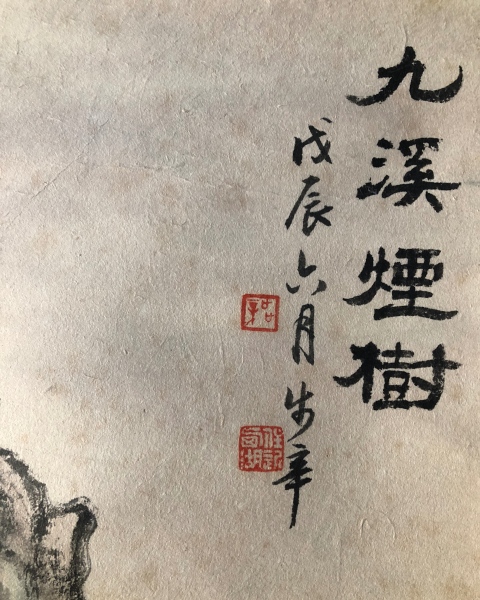 九溪煙樹
戊辰六月辛